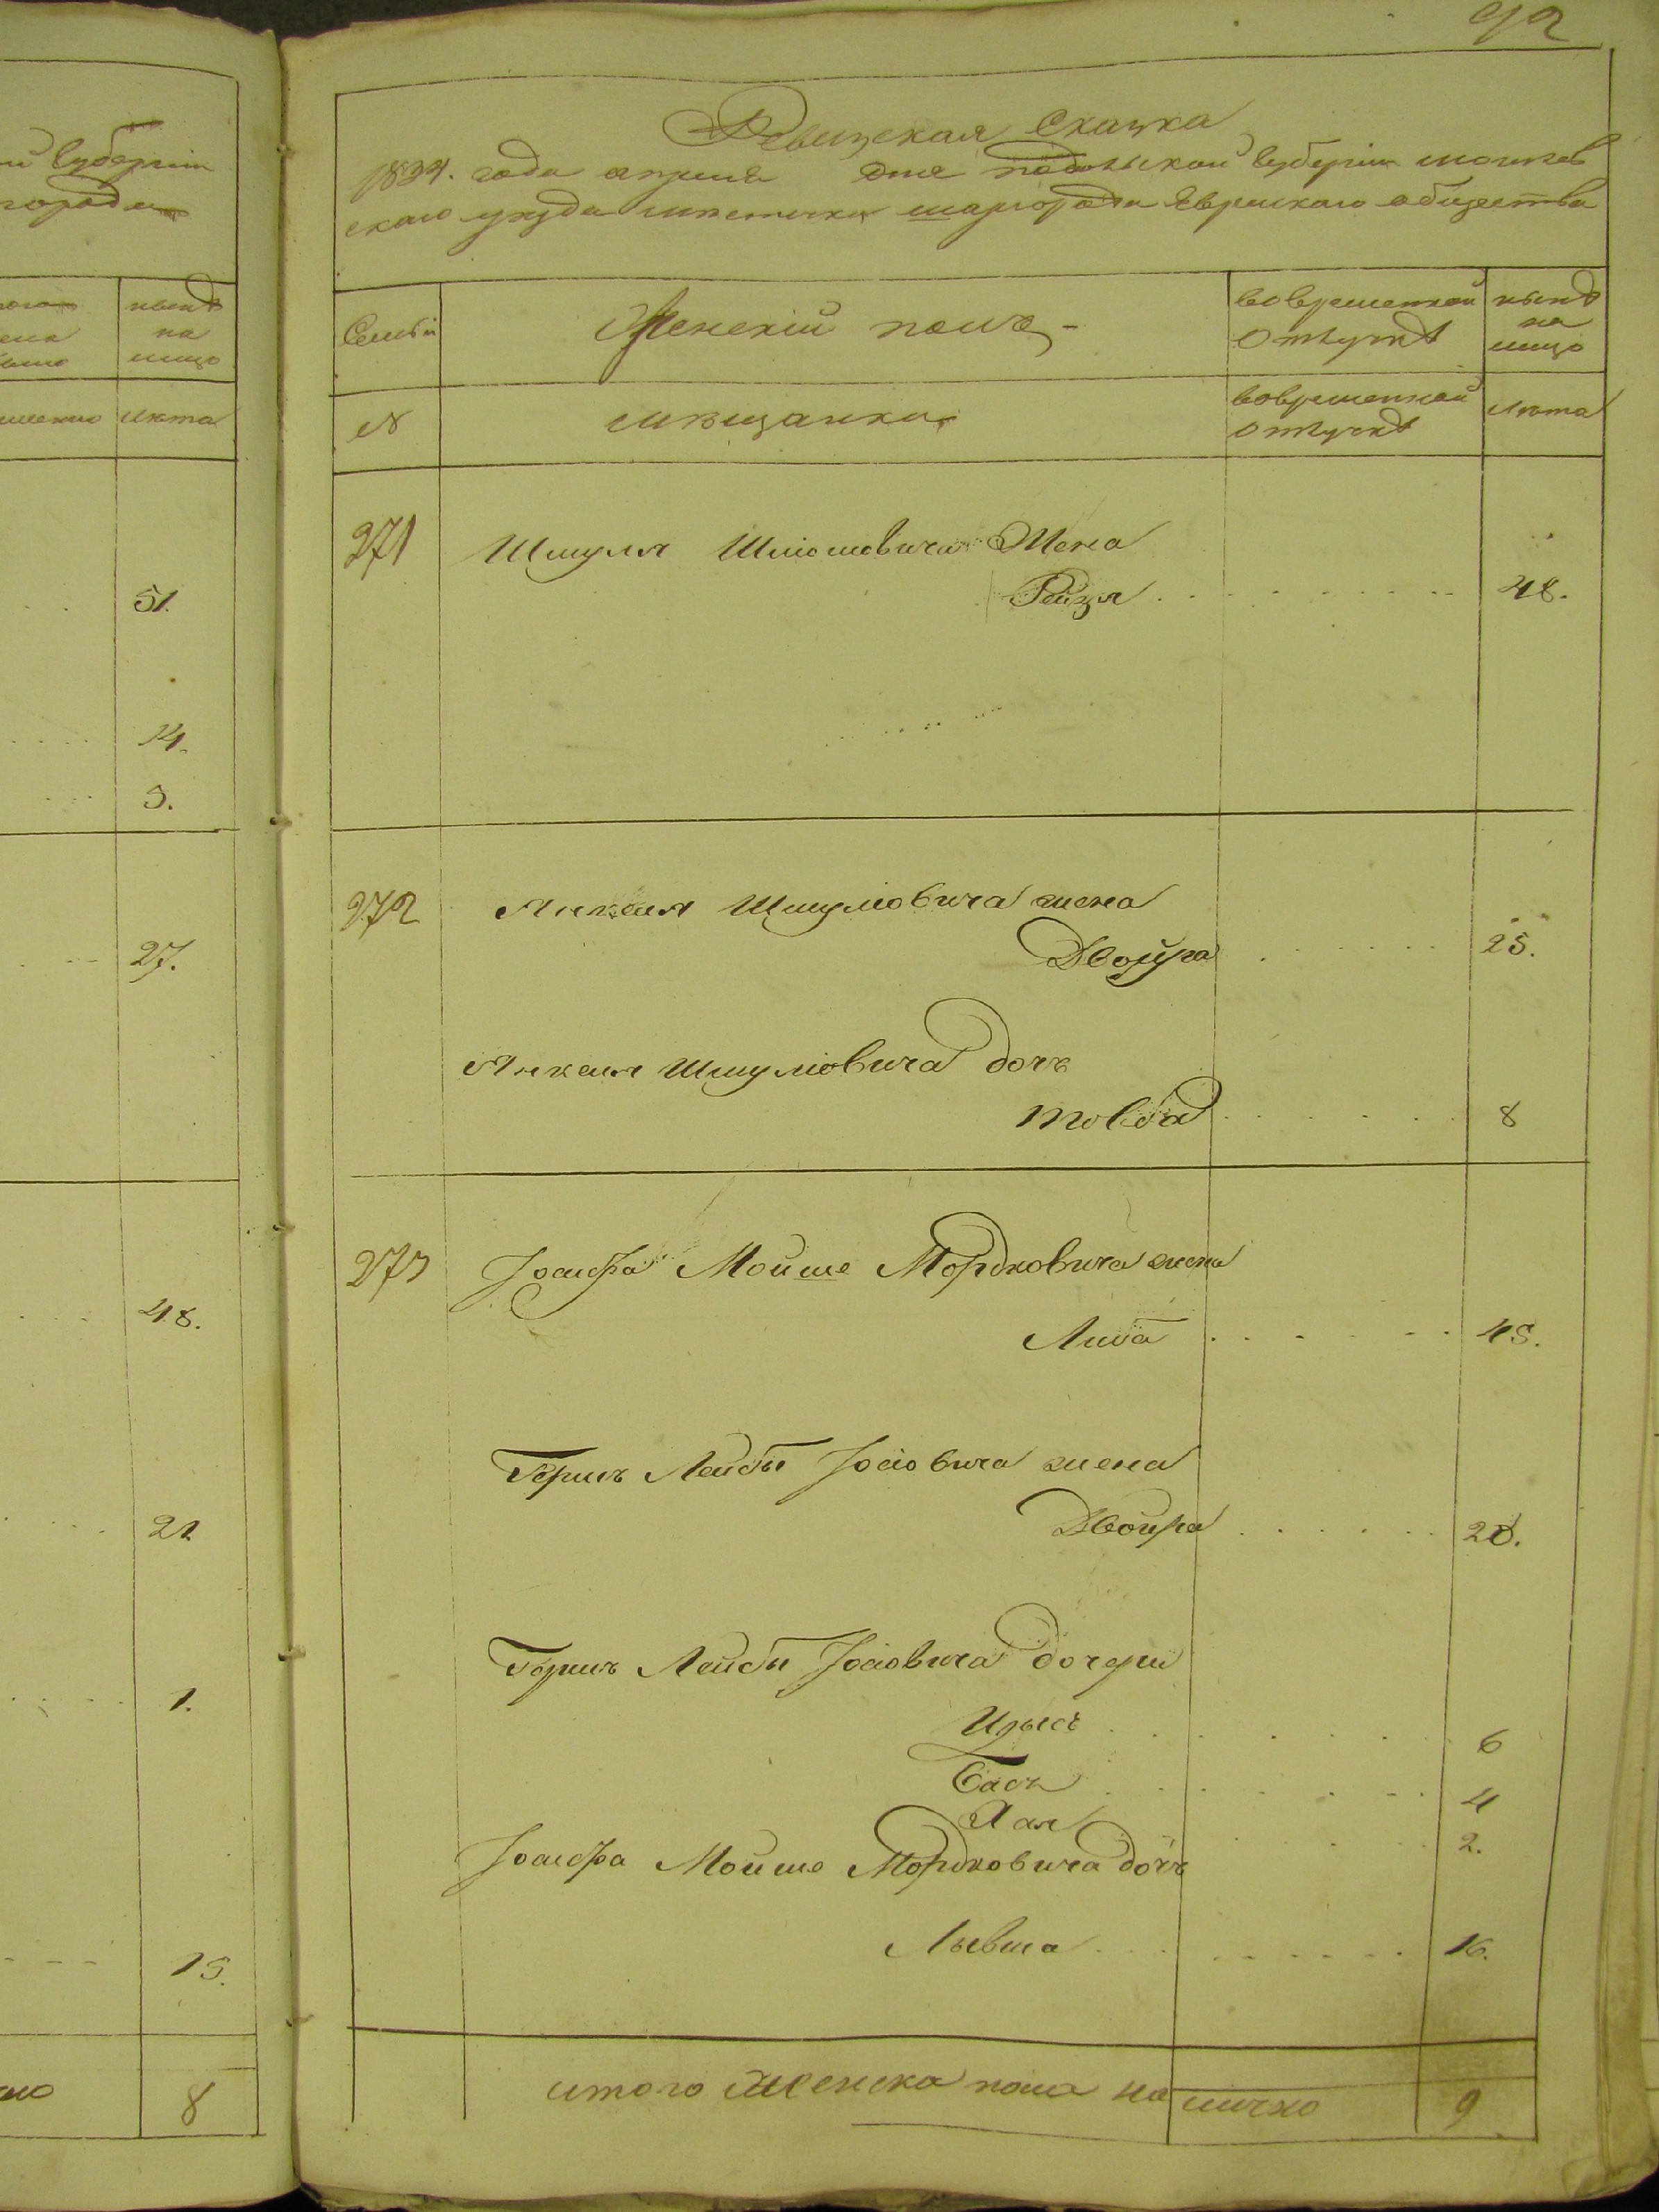 92
Ревизская Сказка
1834. года апреля дня подольской Губернии могилев
скаго уезда местечка шаргорода Еврейскаго общества
Семьи
Женский полъ
вовременной
отлучкѣ
нынѣ
на
лицо
N
мѣщанки
вовременной
отлучкѣ
лѣта
271 Шмуля Шлiомовича Жена
Рейзя 48.
272 Янкеля Шмулiовича жена
Двойра 25.
Янкеля Шмулiовича дочь
товба 8
273 Iосифа Мойше Мордковича жена
Либа 45.
Гершъ Лейбы Iосiовича жена
Двойра
Гершъ Лейбы Iосiовича дочери
6
Бася 4
Хая 2.
Iосифа Мойше Мордковича дочь
16.
итого Женска пола на лицо 9
й Губернiи
города
нынѣ
на
лицо
лѣта
51.
14.
5.
27.
48.
21
1.
15.
8